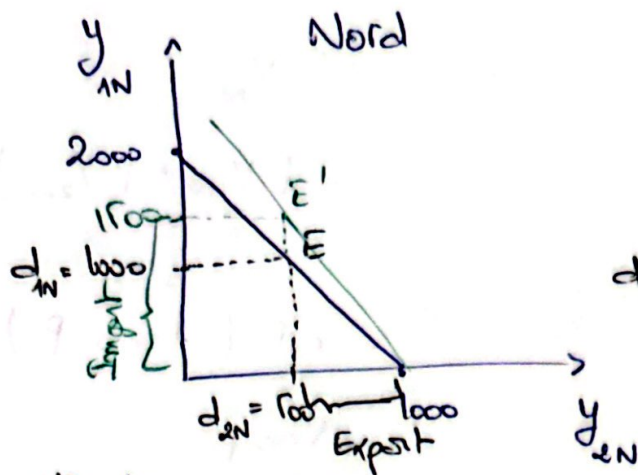 Nord
y1N
2000
1500
E'
E
d1N = 1000
Import
d
d2N = 500
1000
Export
y2N